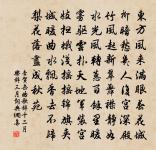 東方風来滿眼春花城
柳暗愁殺人復宮深殿
竹風起新翠舞衿淨如
水光風轉蕙百餘里暖
霧驅雲撲天地軍裝宮
妓掃蛾淺摇摇錦旗夾
城暖曲水飄香去不歸
梨花落盡成秋苑